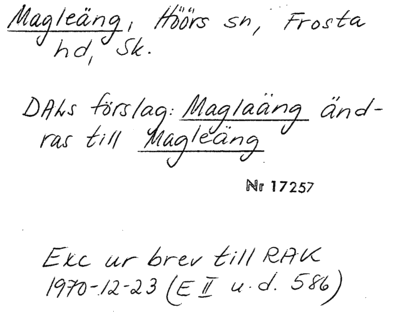 Magleäng, Höörs sn, Frosta
hd, Sk.
DALs förslag: Maglaäng änd-
ras till Magleäng
Nr 17257
Exc ur brev till RAK
1970-12-23 (E II u.d. 586)